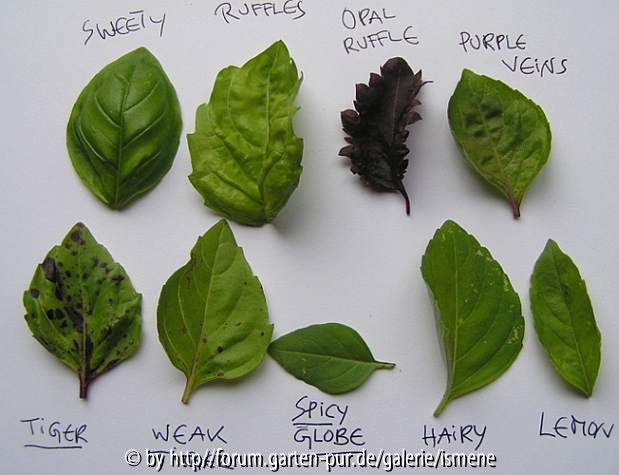 SWEETY
RUFFLES
OPAL
RUFFLE
PURPLE
VEINS
TIGER
WEAK
SPICY
GLOBE
HAIRY
LEMON
© by http://forum.garten-pur.de/galerie/ismene